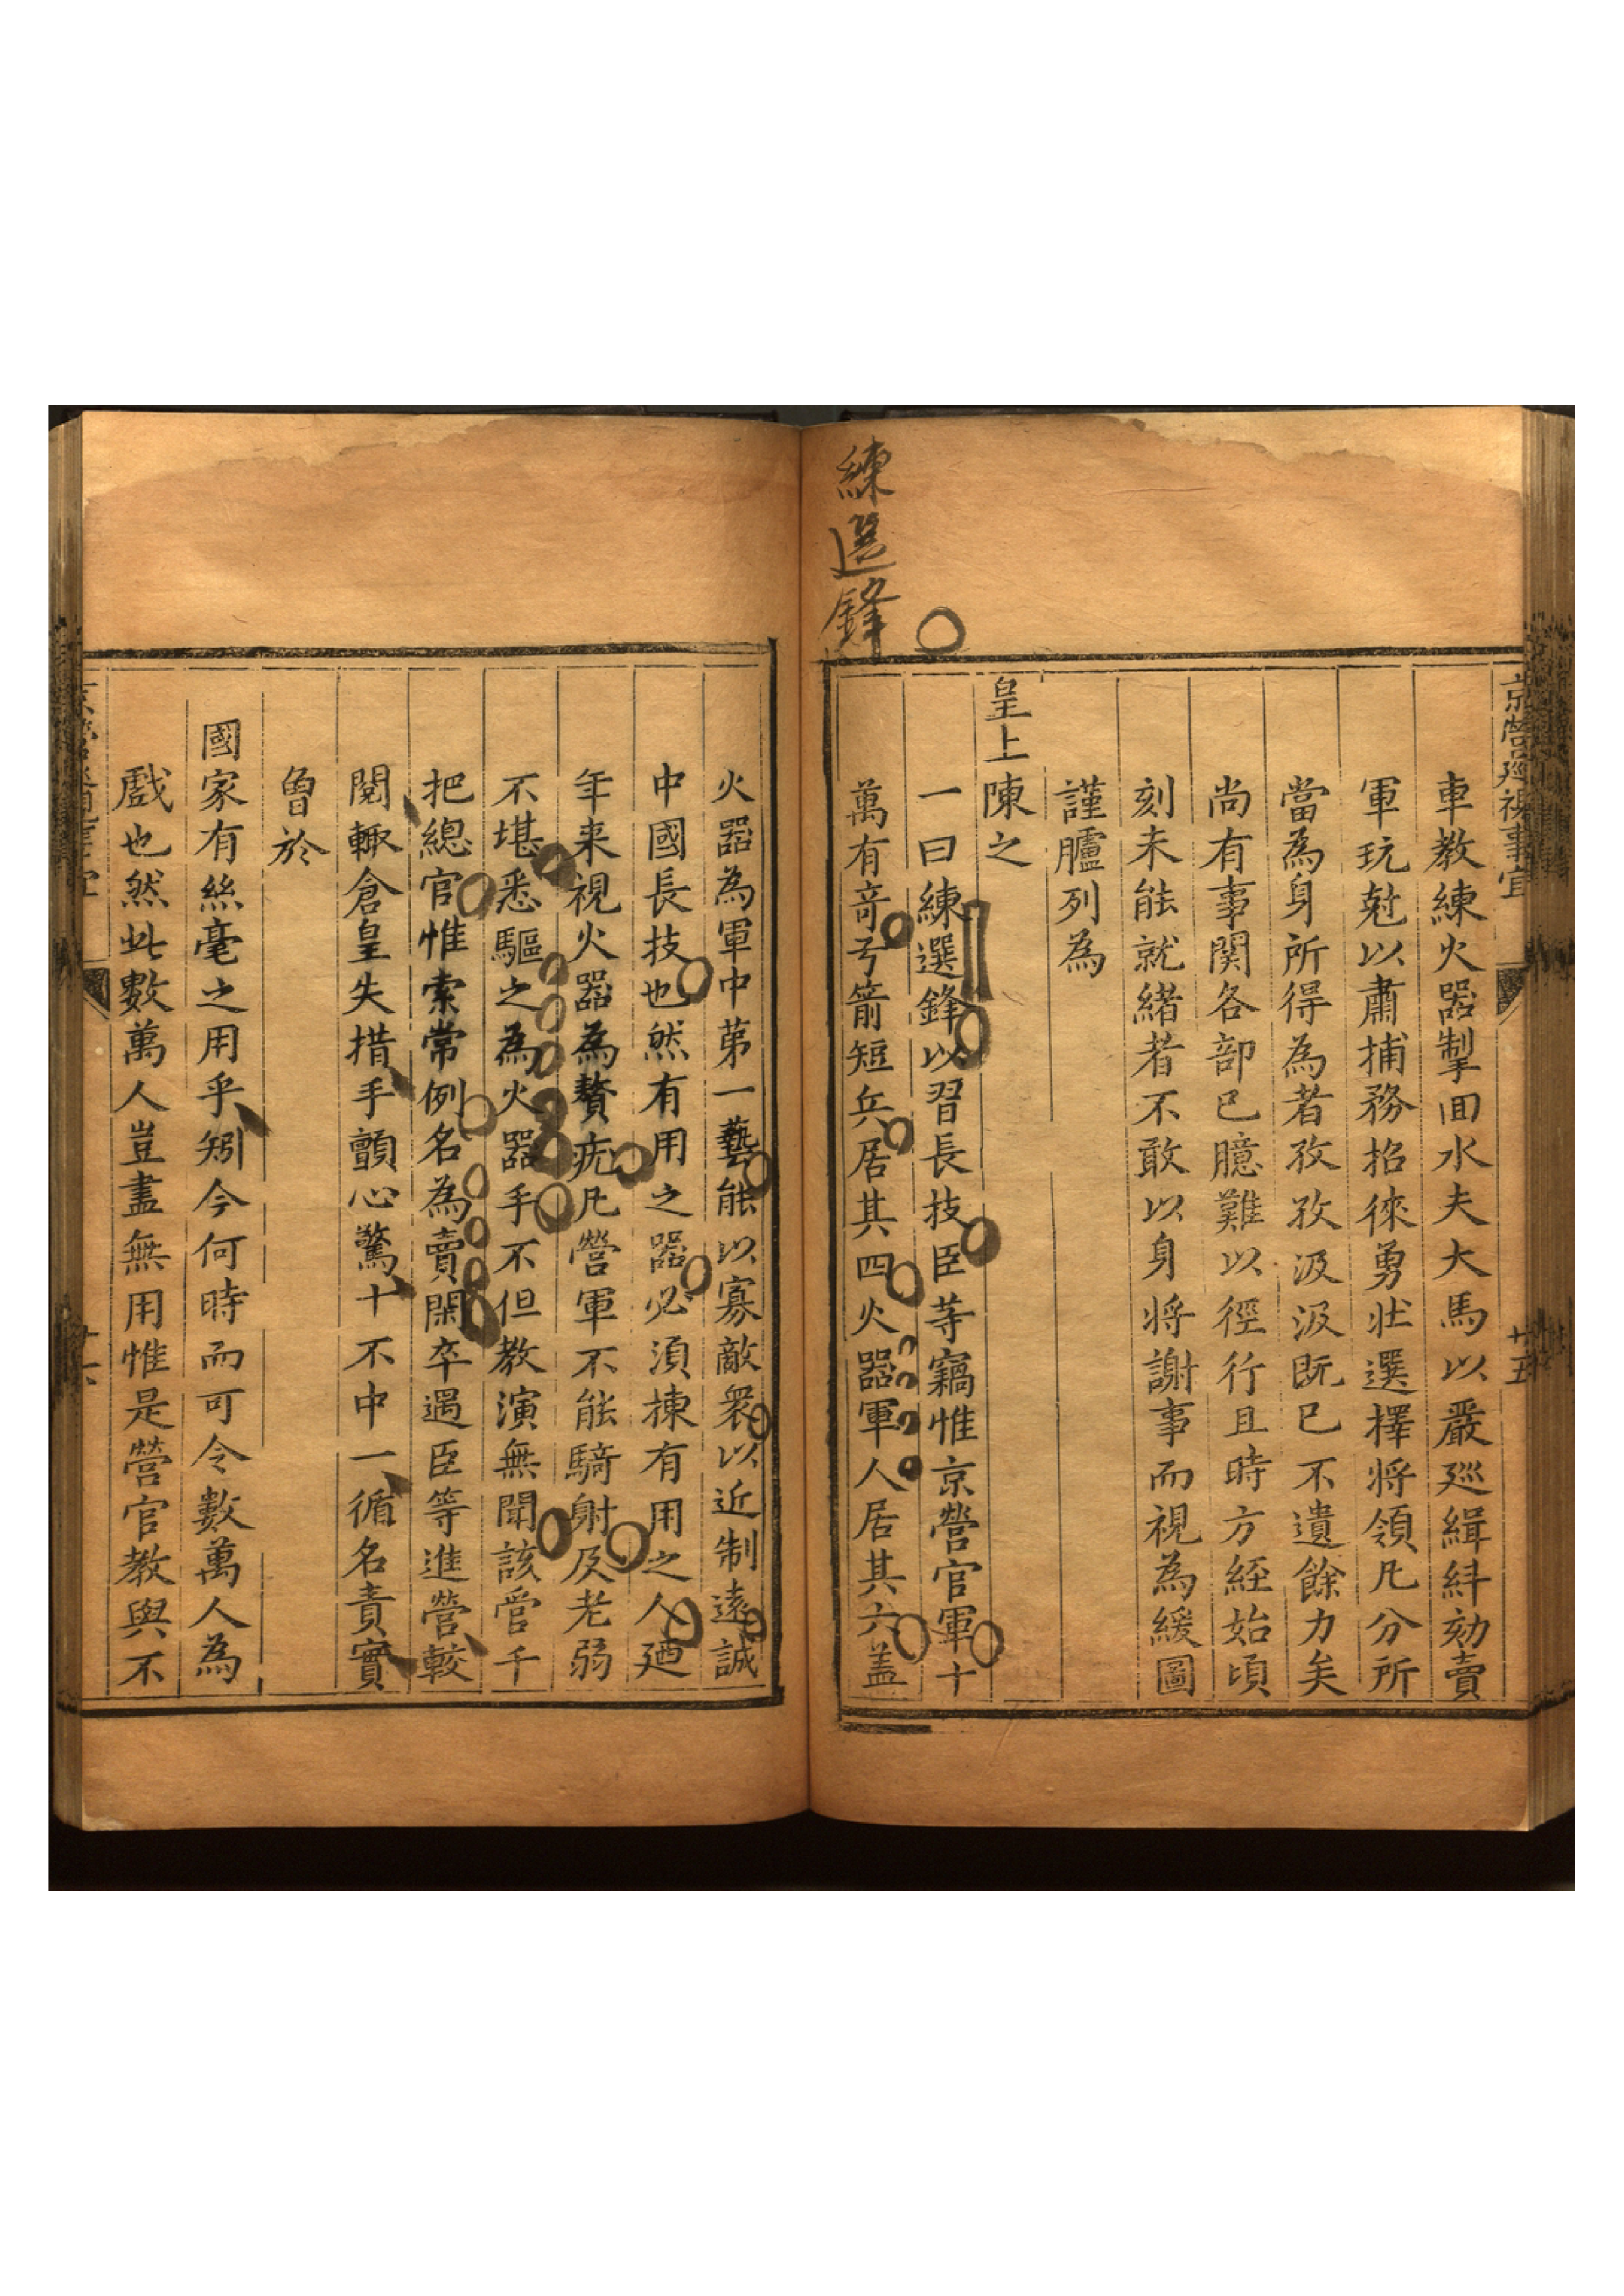 京營巡視事宜
十五
車教練火器掣回水夫大馬以嚴廵緝紏劾賣
軍玩尅以肅捕務招徠勇壮選擇将領凡分所
當為身所得為者孜孜汲汲既已不遺餘力矣
尚有事関各部已臆難以徑行且時方經始頃
刻未能就緒者不敢以身将謝事而視為緩圖
謹臚列為
皇上陳之
一曰練選鋒以習長技臣䓁竊惟京營官軍十
萬有竒弓箭短兵居其四火器軍人居其六盖
練選鋒
火器為軍中苐一藝能以寡敵衆以近制遠誠
中國長技也然有用之器必湏揀有用之人廼
年来視火器為贅疣凡營軍不能騎射及老弱
不堪悉驅之為火器手不但教演無聞該管千
把總官惟索常例名為賣閑卒遇臣等進營較
閱輙倉皇失措手顫心驚十不中一循名責實
曾於
國家有絲毫之用乎矧今何時而可令數萬人為
戲也然此數萬人豈盡無用惟是營官教與不